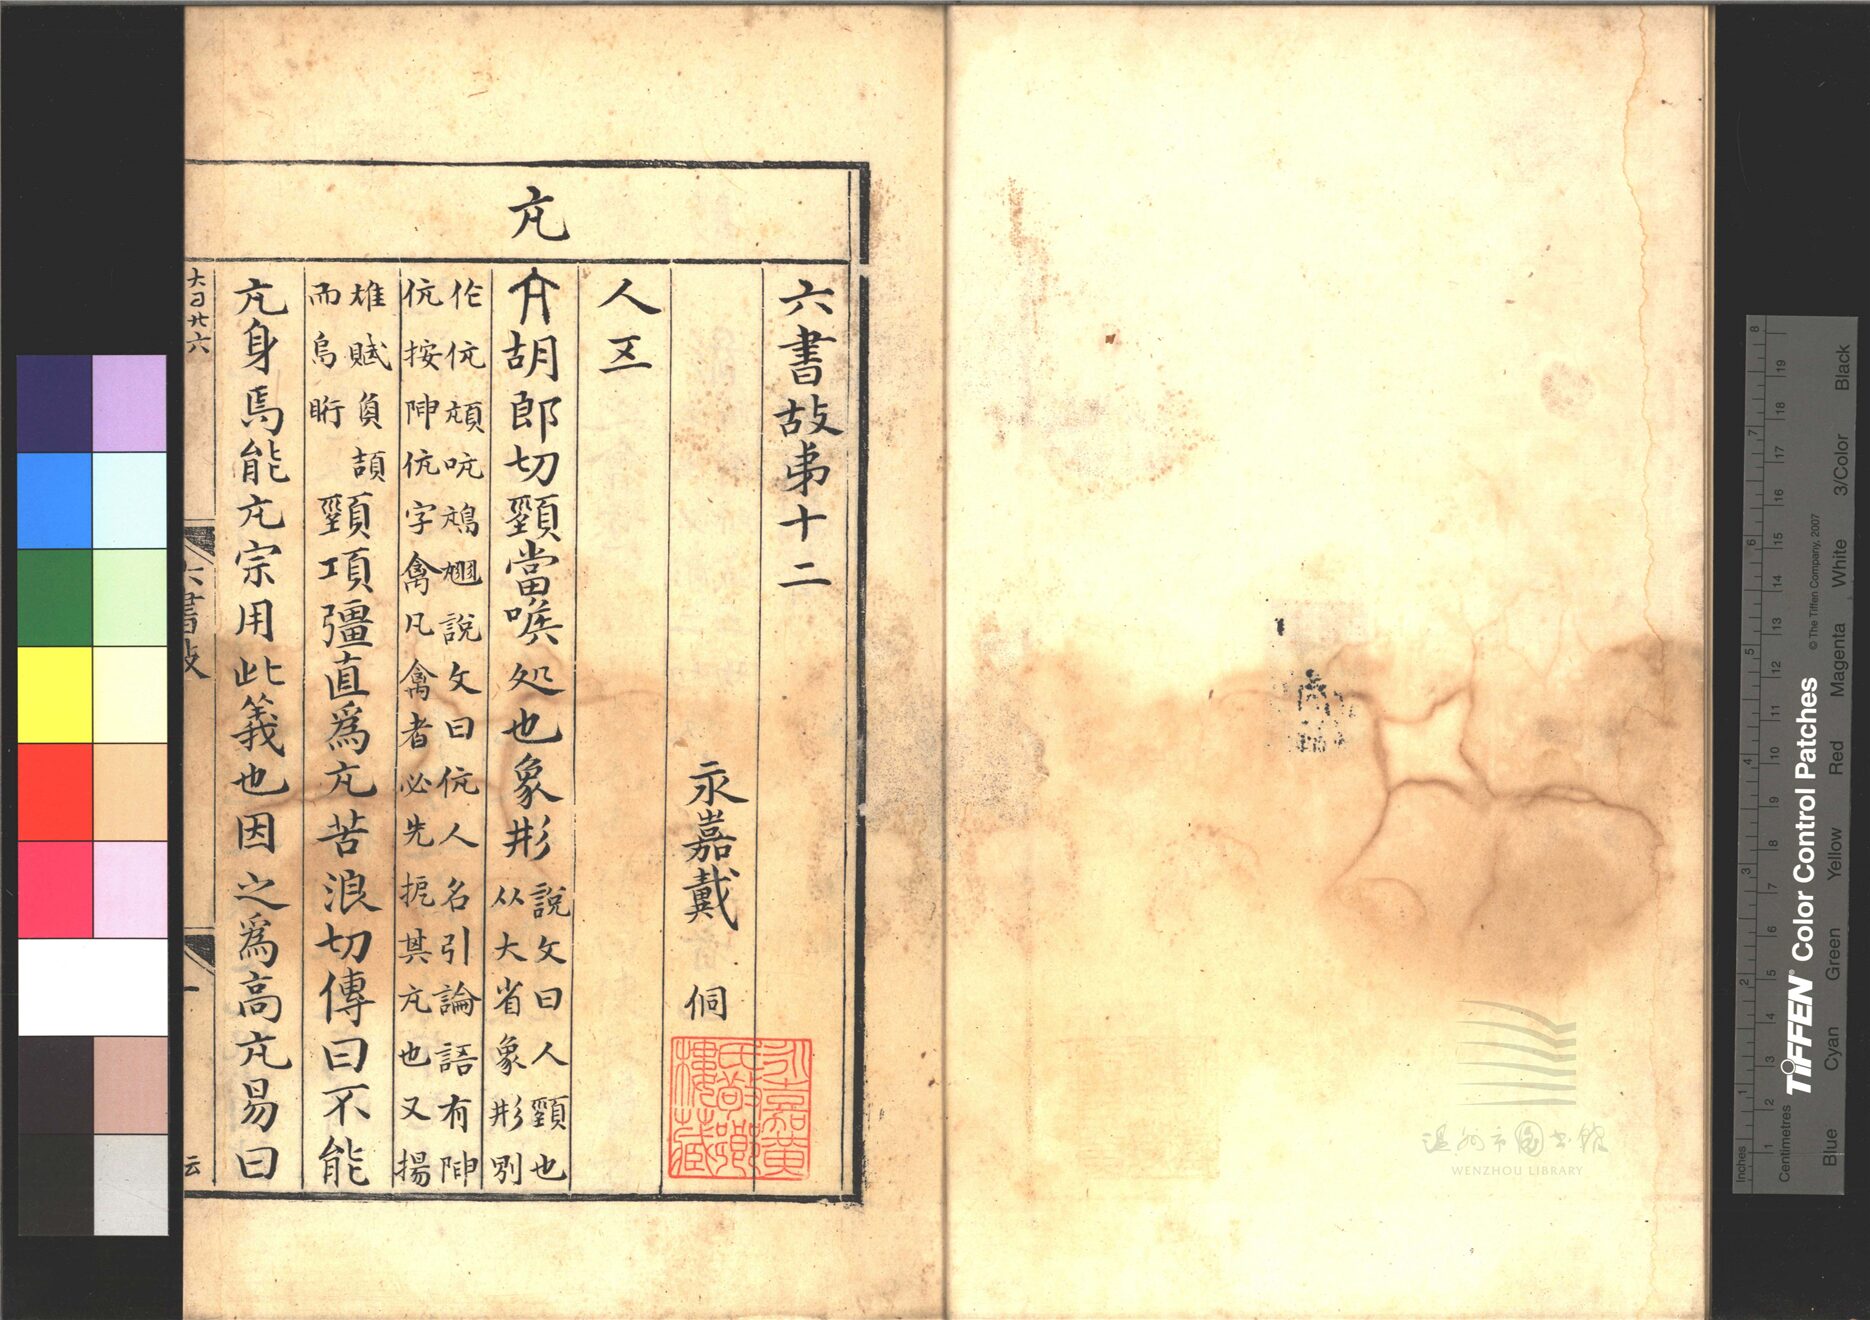 亢
六書故弟十二
永嘉戴 侗
人五
胡郎切頸當喉処也象形說文曰人頸也
从大省象形別
作伉頏吭䲳說文曰伉人名引論語有陳
伉按陳伉字禽凡禽者必先扼其亢也又揚
雄賦負頡
而鳥䀪
頸項彊直爲亢苦浪切傳曰不能
亢身焉能亢宗用此義也因之爲高亢易曰
六書故
一
云
永嘉黃
氏敬鄉
樓藏
溫州市圖書館
WENZHOU LIBRARY
TIFFEN® Color Control Patches
© The Tiffen Company, 2007
Inches 1 2 3 4 5 6 7 8
Centimetres 1 2 3 4 5 6 7 8 9 10 11 12 13 14 15 16 17 18 19
Blue Cyan Green Yellow Red Magenta White 3/Color Black